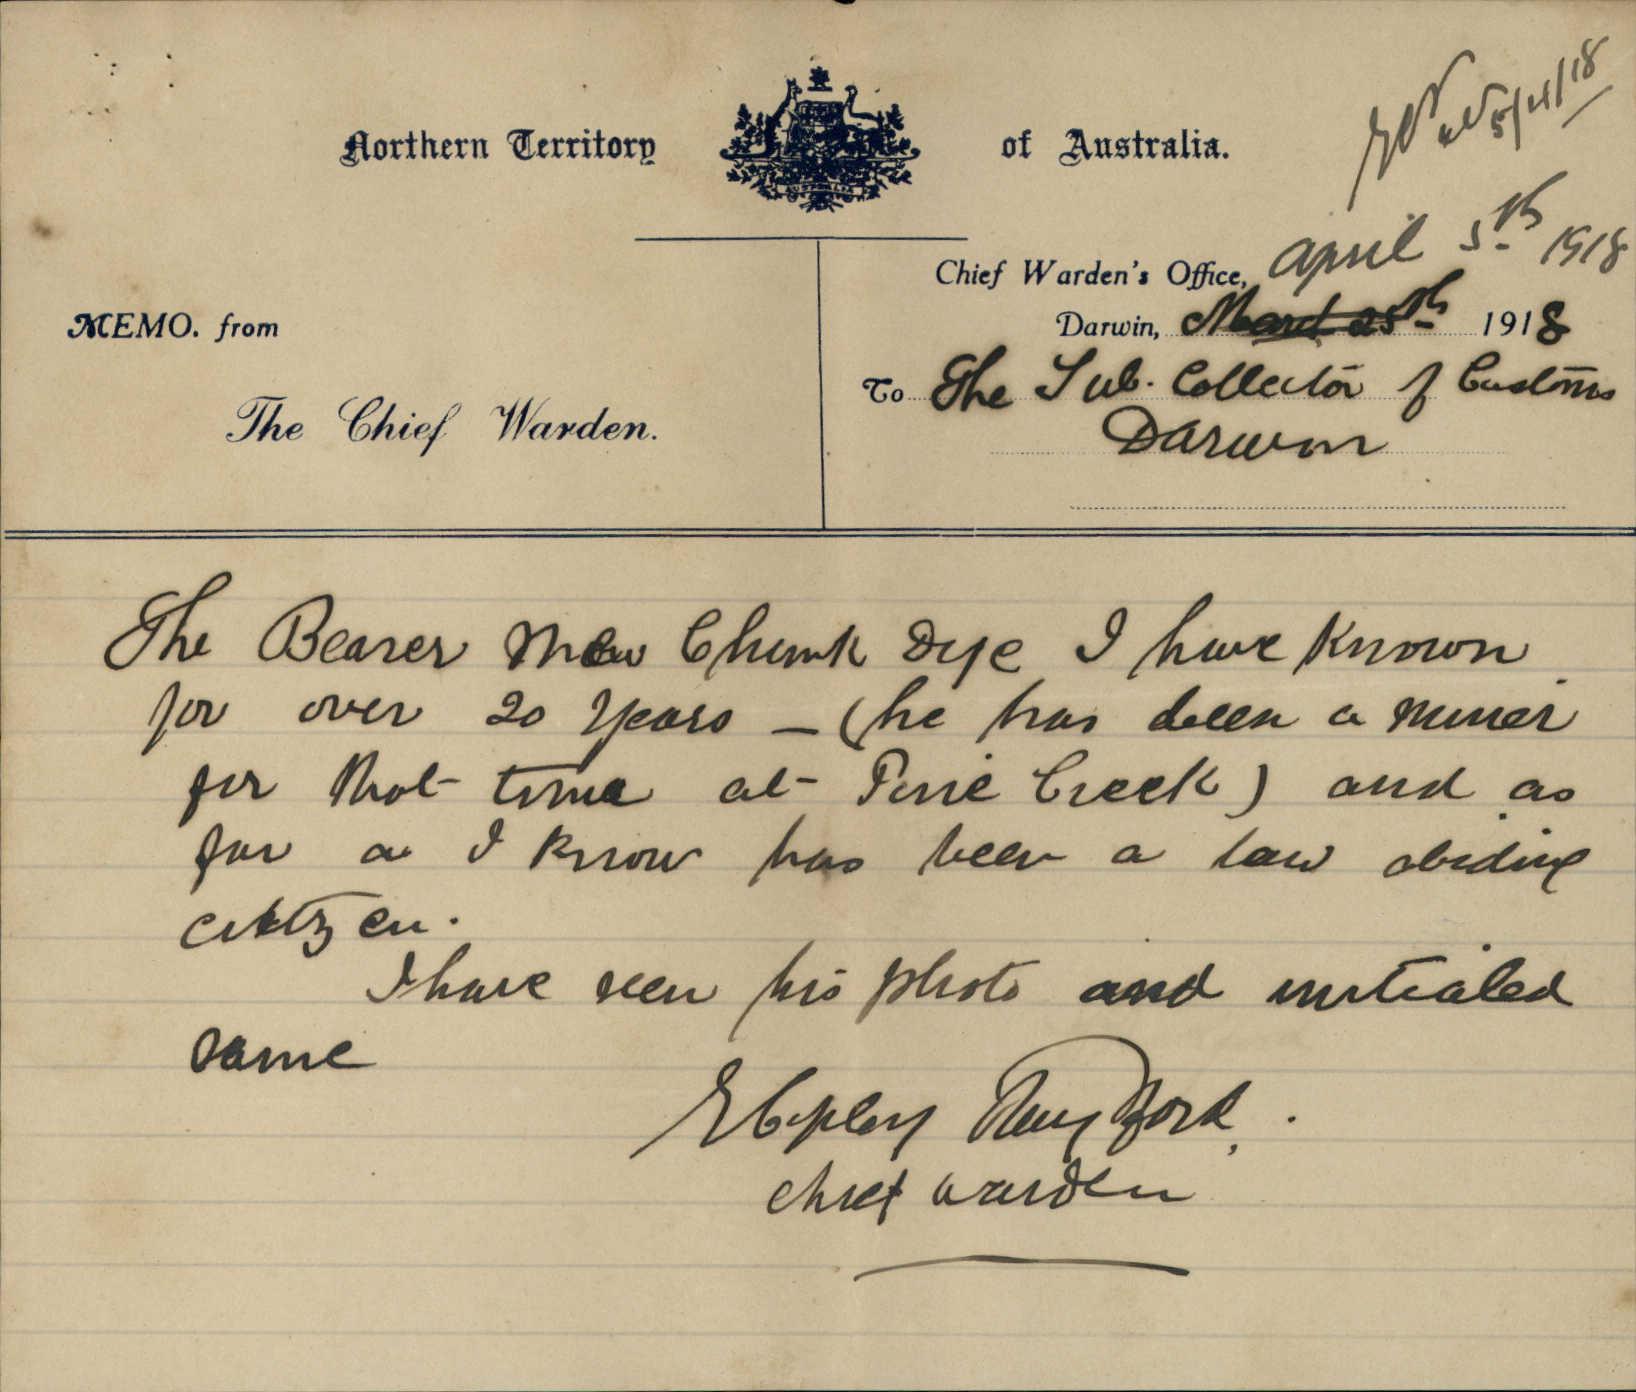 5/4/18
Northern Territory of Australia.
AUSTRALIA
Chief Warden's Office, April 5th 1918
MEMO. from
Darwin, March 25th 1918
To The Sub. Collector of Customs
The Chief Warden.
Darwin
The Bearer Mew Chunk Dye I have known
for over 20 years — (he has been a miner
for that time at Pine Creek) and as
far as I know has been a law abiding
citizen.
I have seen his photo and initialed
same
E Copley Playford.
Chief Warden